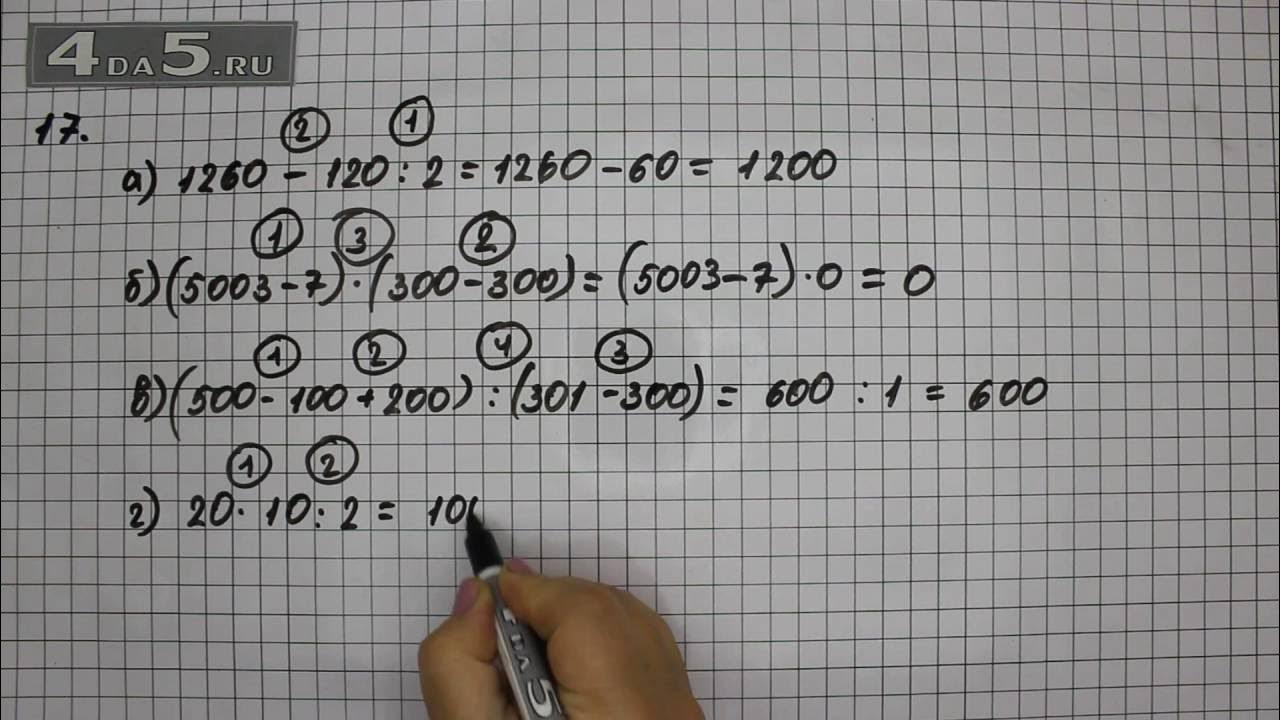 4DA5.RU
17.
② ①
а) 1260 - 120 : 2 = 1260 - 60 = 1200
① ③ ②
б) (5003 - 7) · (300 - 300) = (5003 - 7) · 0 = 0
① ② ④ ③
в) (500 - 100 + 200) : (301 - 300) = 600 : 1 = 600
① ②
г) 20 · 10 : 2 = 100
4DA5